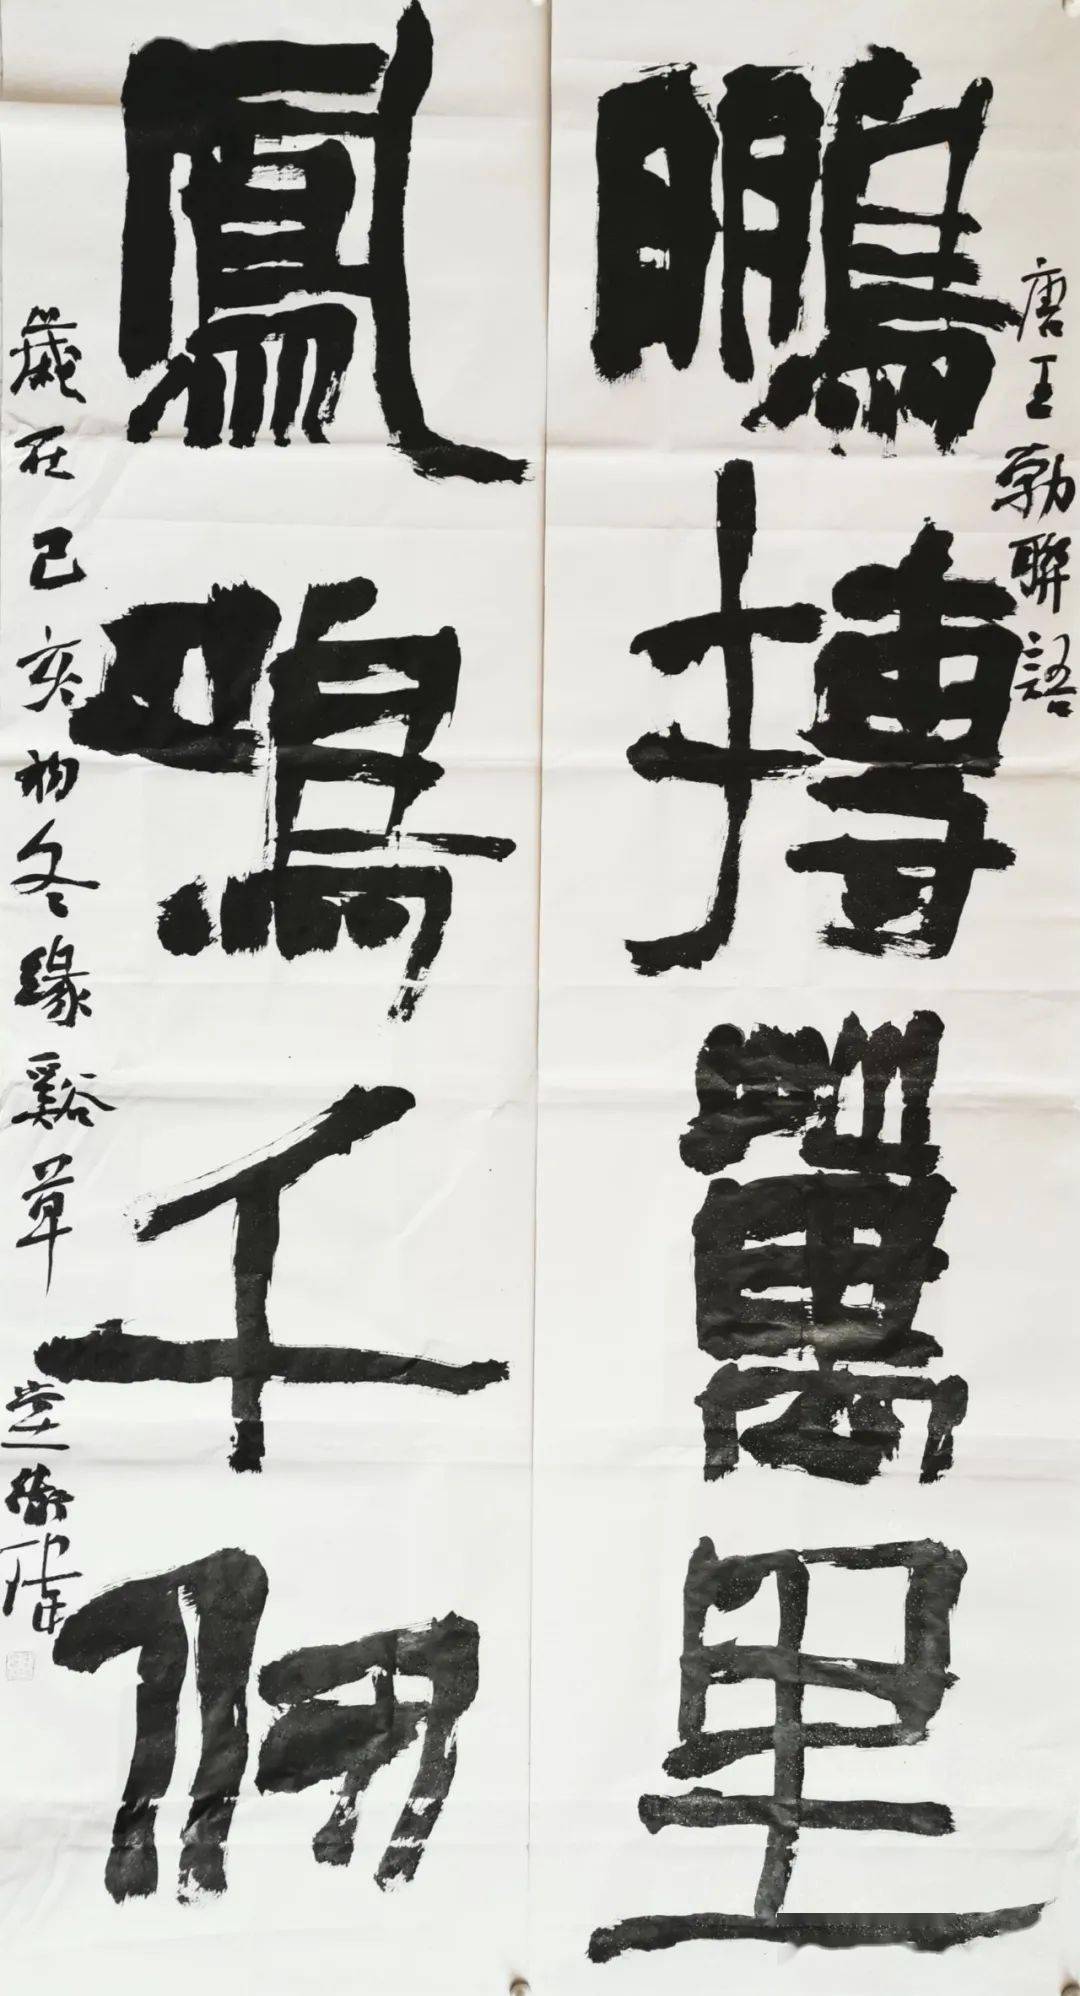 唐王勃聯語
鵬搏萬里
鳳鳴千仞
歲在己亥初冬緣谿草堂